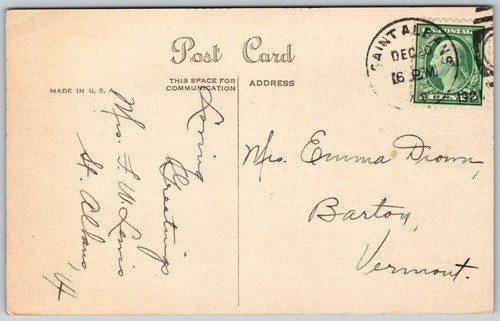 Post Card
THIS SPACE FOR
COMMUNICATION
ADDRESS
MADE IN U. S. A.
SAINT ALBANS
DEC 20
6 PM
1921
U.S. POSTAGE
Loving
Greetings
Mrs. F. W. Lewis
St. Albans, Vt
Mrs. Emma Drown,
Barton,
Vermont.